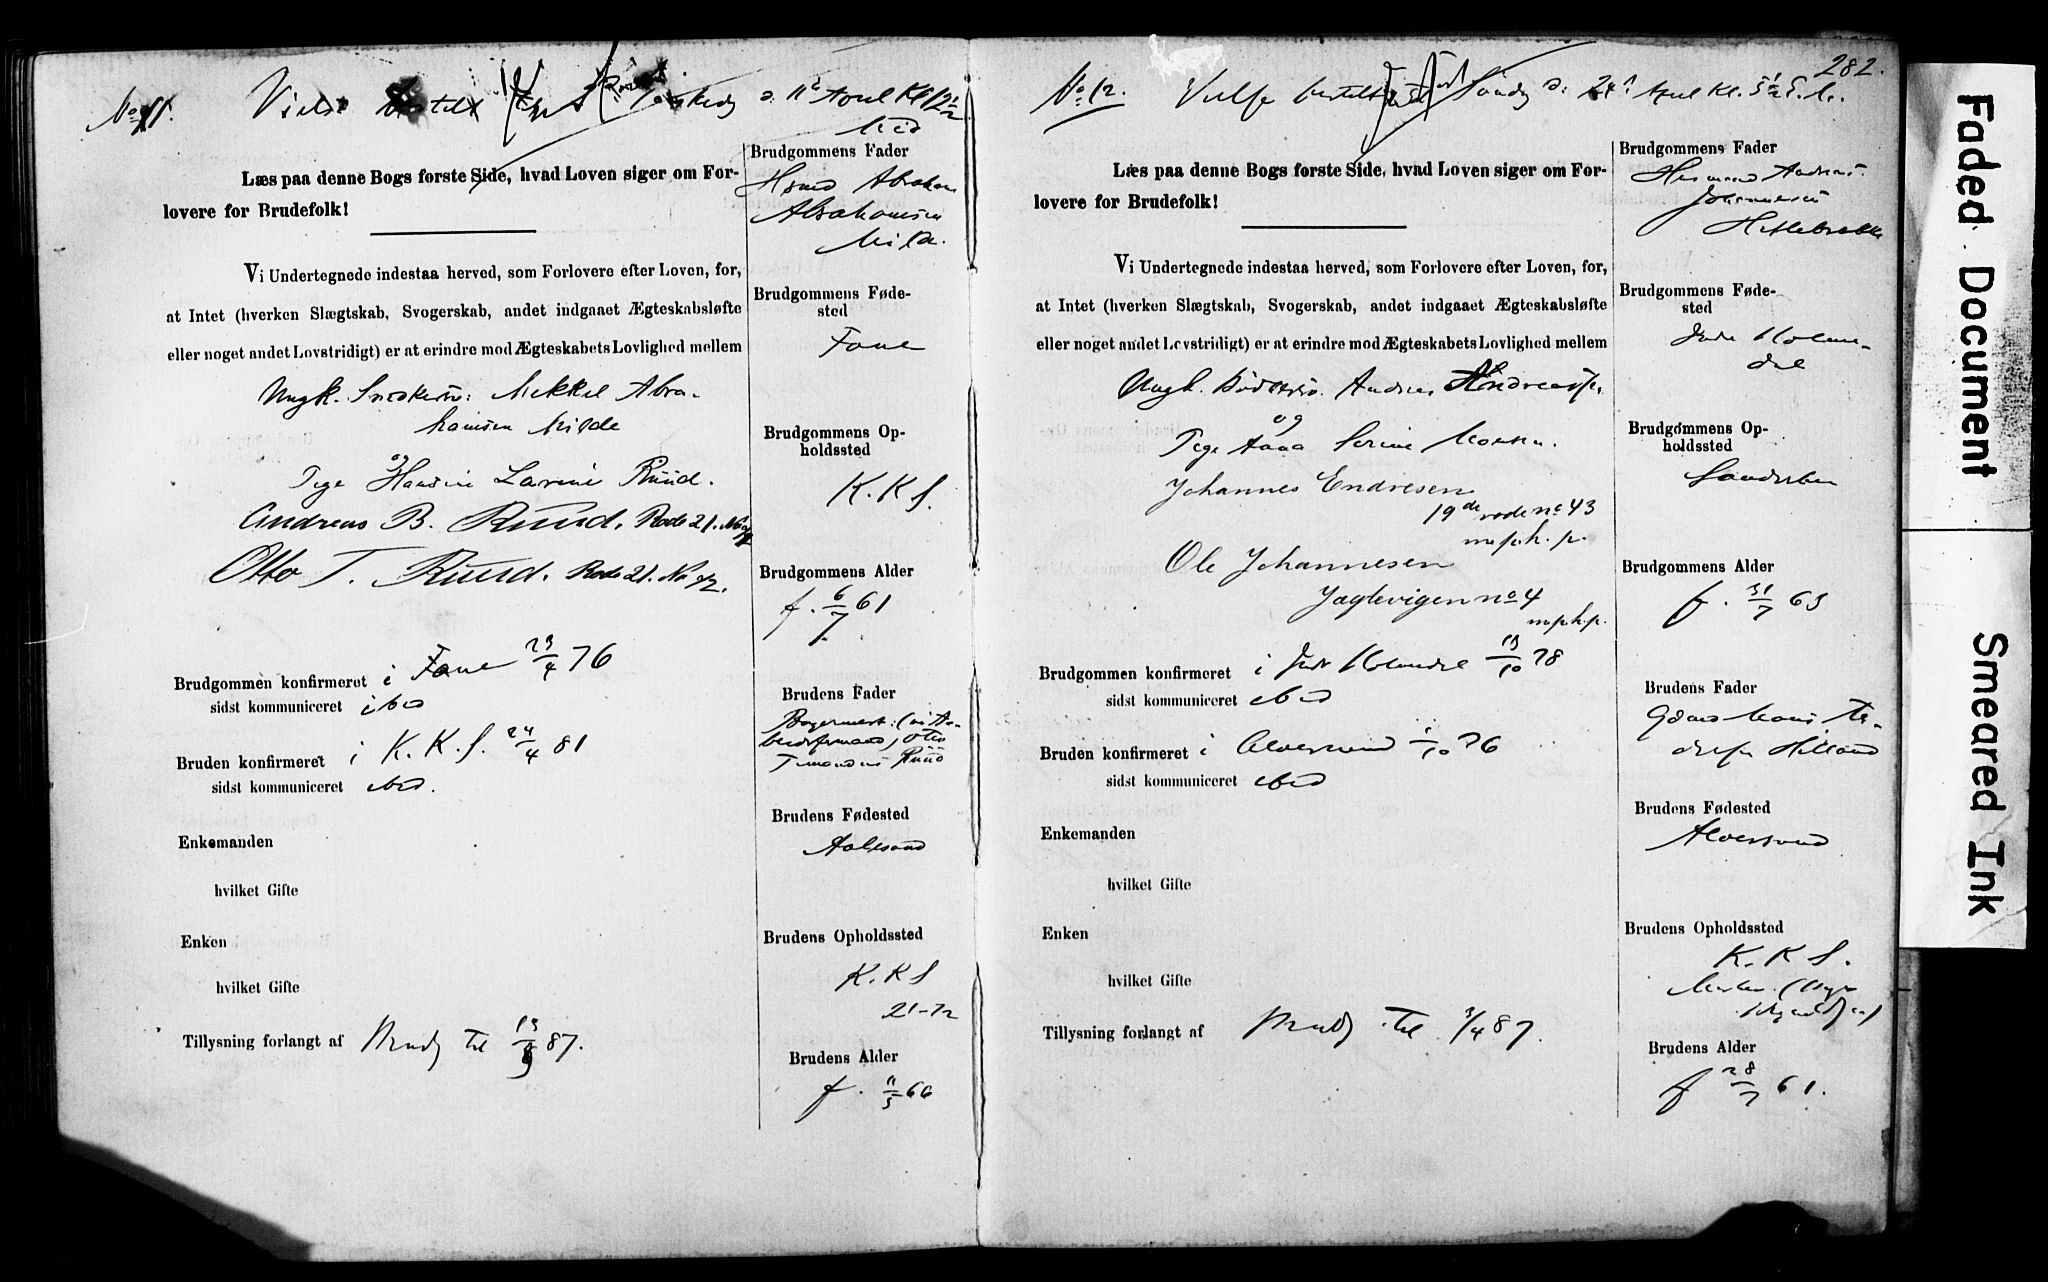 No 11. Vielse bestilt d: 11te April Kl 12 1/2
Læs paa denne Bogs første Side, hvad Loven siger om For-
lovere for Brudefolk!
Vi Undertegnede indestaa herved, som Forlovere efter Loven, for,
at Intet (hverken Slægtskab, Svogerskab, andet indgaaet Ægteskabsløfte
eller noget andet Lovstridigt) er at erindre mod Ægteskabets Lovlighed mellem
Ungk. Snedkersv: Mikkel Abra-
hamsen Milde
og
Pige Hansine Lavine Ruud.
Andreas B. Ruud. Rode 21. No 72
Otto T. Ruud. Rode 21. No 72.
Brudgommen konfirmeret i Fane 23/4 76
sidst kommuniceret ibid
Bruden konfirmeret i K. K. S. 24/4 81
sidst kommuniceret ibid.
Enkemanden
hvilket Gifte
Enken
hvilket Gifte
Tillysning forlangt af Brudg til 13/3 87.
Brudgommens Fader
Abraham
Abrahamsen
Milde.
Brudgommens Føde-
sted
Fane
Brudgommens Op-
holdssted
K. K S.
Brudgommens Alder
f. 6/7 61
Brudens Fader
Otto
Ruud
Brudens Fødested
Aalesund
Brudens Opholdssted
K. K S
21-72
Brudens Alder
f. 11/3 66
282.
No 12. Vielse bestilt Søndg d: 24de April Kl. 5 1/2 E. M.
Læs paa denne Bogs første Side, hvad Loven siger om For-
lovere for Brudefolk!
Vi Undertegnede indestaa herved, som Forlovere efter Loven, for,
at Intet (hverken Slægtskab, Svogerskab, andet indgaaet Ægteskabsløfte
eller noget andet Lovstridigt) er at erindre mod Ægteskabets Lovlighed mellem
Ungk. Andreas Andreas
og
Pige Anna Serine Monsen.
Johannes Endresen
19de rode no 43
m.p.h.p.
Ole Johannesen
Jægtevigen no 4
m.p.h.p.
Brudgommen konfirmeret i Indr Holmedal 13/10 78
sidst kommuniceret ibid
Bruden konfirmeret i Alversund 1/10 76
sidst kommuniceret ibid
Enkemanden
hvilket Gifte
Enken
hvilket Gifte
Tillysning forlangt af Brudg til 3/4 87.
Brudgommens Fader
Andreas
Johannesen
Brudgommens Føde-
sted
Indr Holme-
dal
Brudgommens Op-
holdssted
Sandviken
Brudgommens Alder
f. 31/7 63
Brudens Fader
Gdmd Mons
Hilland
Brudens Fødested
Alversund
Brudens Opholdssted
K. K S.
Brudens Alder
f 28/7 61.
Faded Document
Smeared Ink